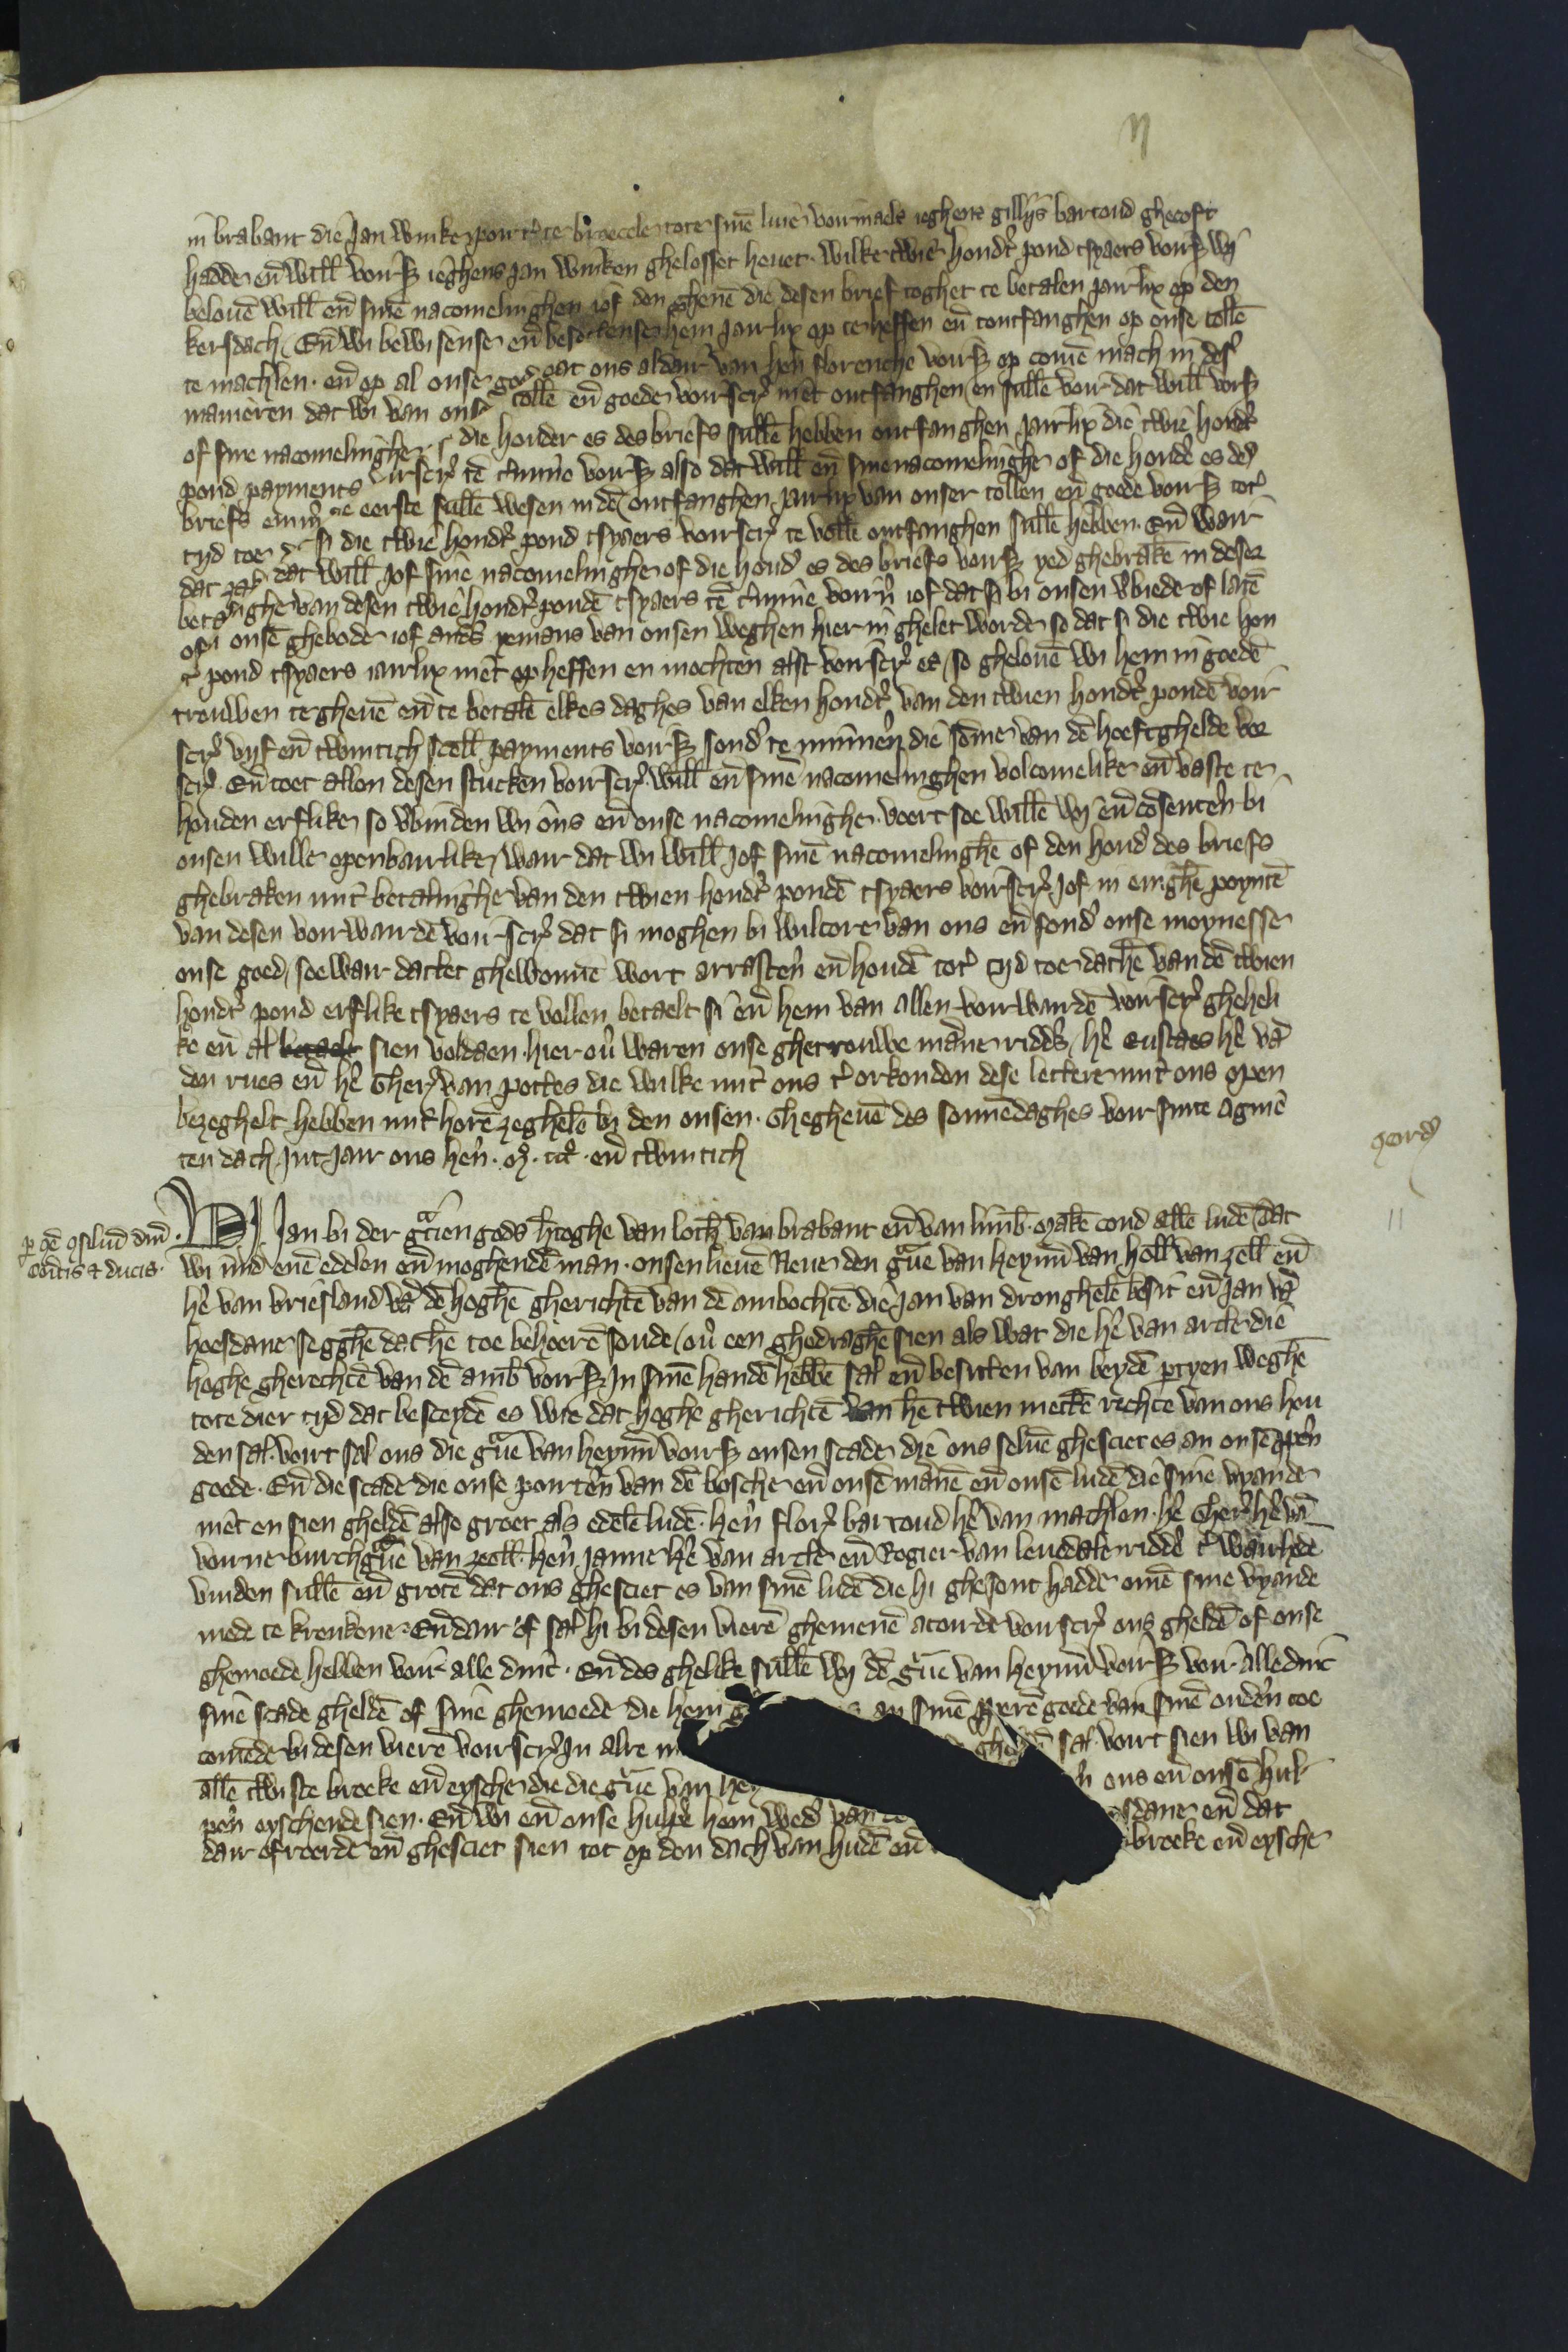 in brabant die Jan winke porter te bruecele tote sinē live vourmaels ieghen gillijs bartoud ghecoft
hadde en̄ will̄ vours̄ ieghens jan winken ghelosset hevet. wilke twie hond't pond tsyaers vours̄ wij
belovē will̄ en̄ sinē nacomelinghen iof den ghenē die desen brief toghet te betalen jairlix op den
kersdach. En̄ wi bewisense en̄ hem jairlix op te heffen en̄ tontfanghen op onse tollē
te machlen. en̄ op al onse dat ons aldair van hē florenche vours̄ op comē mach in des'
manieren dat wi van onse tollē en̄ goede vourscr' niet ontfanghen en sullē vour dat will̄ vors̄
of sine nacomelinghe die houder es des briefs sullē hebben ontfanghen jairlix die twie hond't
pond payments tē t'mine vours̄ also dat will̄ en̄ sine nacomelinghe of die houd' es des
briefs eerste sullē wesen in dē ontfanghen jairlix van onser tollen en̄ goede vours̄ tot'
tijd toe si die twie hond't pond tsyaers vourscr' te vollē ontfanghen sullē hebben. En̄ wair
dat dat will̄ Jof sine nacomelinghe of die houd' es des briefs vours̄ yed ghebrake in deser
van desen twie hond't pondē tsyaers tē t'mine iof dat si bi onsen v'biede of latē
onsē ghebode iof and's yemans van onsen weghen hier in ghelet worde so dat si die twie hon
t' pond tsyaers jairlix niet op heffen en mochten alst vourscr' es so ghelovē wi hem in goedē
trouwen te ghevē en̄ te betalē elkes daghes van elken hond't van den twien hond't pondē vour
scr' vijf en̄ twintich scell̄ payments vours̄ sond' te minn'en die some van dē hoeftghelde vor
scr'. En̄ toet allen desen stucken vourscr' will̄ en̄ sinē nacomelinghen volcomelike en̄ vaste te
houden erflike so v'binden wij ons en̄ onse nacomelinghe. voert soe willē wij en̄ cōsenter'n bi
onsen wille openbairlike wair dat wi will̄ Jof sinē nacomelinghē of den houd' des briefs
ghebraken mit betalinghe van den twien hond't pondē tsyaers vourscr' Jof in enighē poyntē
van desen vourwairdē vourscr' dat si moghen bi wilcore van ons en̄ sond' onse moynesse
onse goed, soe wair dattet ghewonnē wort arrast'en en̄ houdē tot' tijd toe dathē van dē twien
hond't pond erflike tsyaers te vollen betaelt si en̄ hem van allen vourwairdē vourscr' gheheli
ke en̄ al betaelt sien voldaen. hier ov' waren onse ghetrouwe māne ridd's / h'e Eustaes h'e vā
den rues en̄ h'e Gher' van pottes die wilke mit ons t' orkonden dese lettere mit ons open
bezeghelt hebben mit horē zeghelē bi den onsen. Ghegheuē des sonnēdaghes vour sinte agnie
ten dach Jnt jair ons he'n. M. CCC. en̄ twintich
george
Wi Jan bi der gracien gods h'toghe van loth' van brabant en̄ van limb'. makē cond allē ludē dat
wi mid enē edelen en̄ moghendē man. onsen lievē Neve den grave van heyn̄ van holl̄ van zell̄ en̄
h'e van vriesland vā dē hoghē gherichtē van dē ambochtē die Jan van dronghelē besit en̄ Jan vā
hoesdane segghē dat hē toe behoerē soude / ov' een ghedraghē sien als wat die h'e van arcle die
hoghe gherechtē van dē amb' vours̄ Jn sinē handē hebbē sal en̄ besitten van beydē p'tyen weghē
tote dier tijd dat besceydē es wie dat hoghe gherichtē van hē twien mettē rechtē van ons hou
den sal. vort sal ons die grave van heyn̄ vours̄ onsen scade die ons selvē ghesciet es an onsē
goede. En̄ die scade die onse port'en van dē bossche en̄ onsē mānē en̄ onsē ludē die sine vyande
niet en sien gheldē also groet als edelē ludē. he'n Flor' bartoud h'e van machlen. h'e Gher' h'e vā
vorne burchgrave van zeell̄. he'n janne h'e van arcle en̄ Rogier van levedale ridd'e t' wairhede
vinden sullē en̄ grote dat ons ghesciet es van sinē ludē die hi ghesent hadde omē sine vyande
mede te krenkene En̄ dair of sal hi bi desen vierē ghemenē acorde vourscr' ons gheldē of onse
ghemoede hebben vour alle dinc. En̄ des ghelike sullē wij dē grave van heyn̄ vours̄ vour alle dinc
sinē scade gheldē of sine ghemoede die hem an sinē goede van sinē oud'en toe
comēde bi desen vierē vourscr' Jn alre sal. vourt sien wi van
allē twiste broeke en̄ eysche die die grave van ons en̄ onsē hul
per'n eyschende sien. En̄ wi en̄ onse hulpe hem wed' van en̄ dat
dair of roerde en̄ ghesciet sien tot op den dach van hudē en̄ broeke en̄ eysche
p' gē qsiliū dnī
comitis & ducis.